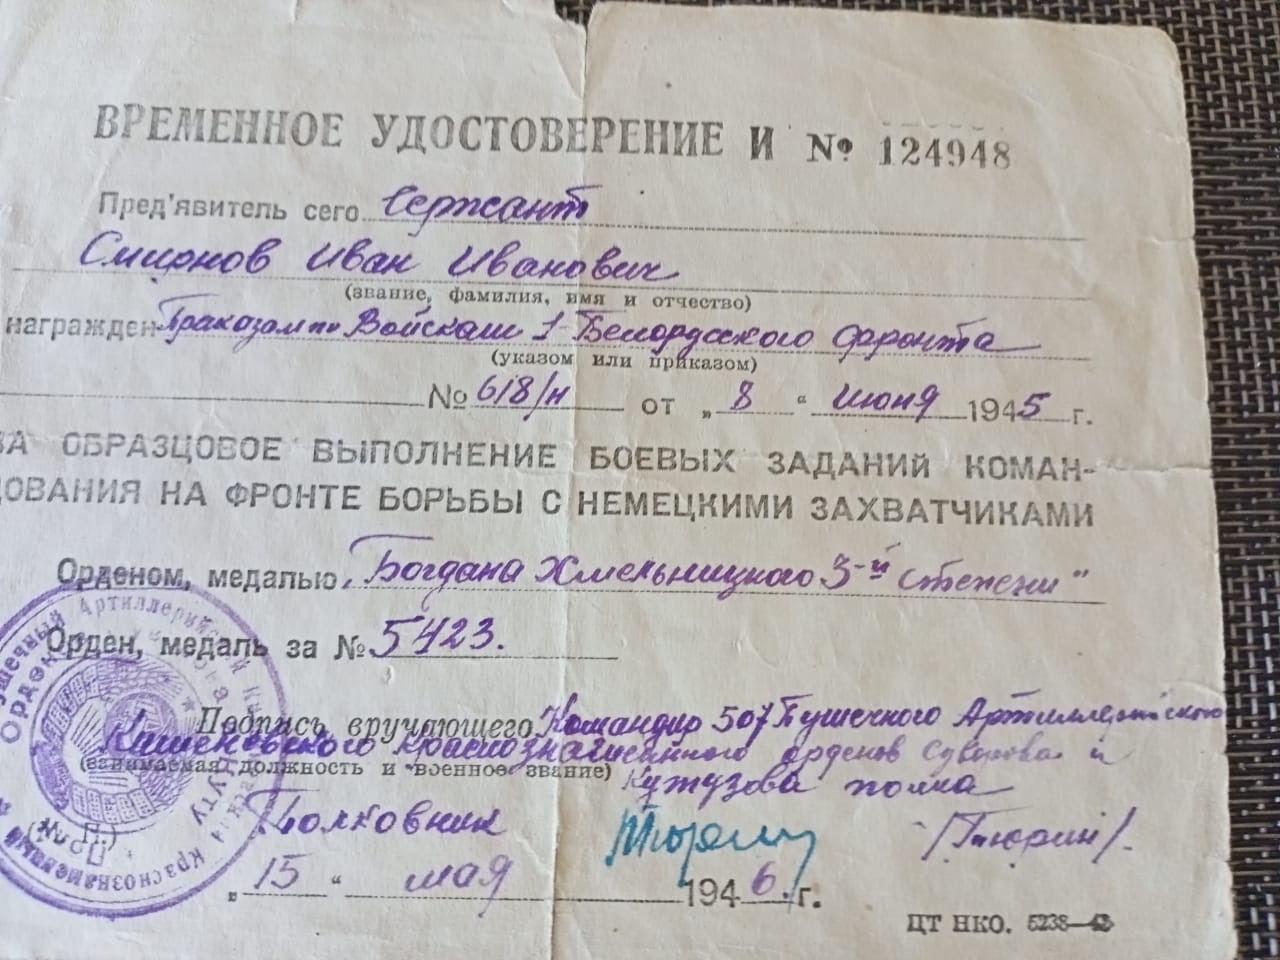 ВРЕМЕННОЕ УДОСТОВЕРЕНИЕ И № 124948
Пред'явитель сего Сержант
Смирнов Иван Иванович
(звание, фамилия, имя и отчество)
награжден Приказом по Войскам 1-Белорусского фронта
(указом или приказом)
№ 618/н от „8“ июня 1945 г.
ЗА ОБРАЗЦОВОЕ ВЫПОЛНЕНИЕ БОЕВЫХ ЗАДАНИЙ КОМАН-
ДОВАНИЯ НА ФРОНТЕ БОРЬБЫ С НЕМЕЦКИМИ ЗАХВАТЧИКАМИ
Орденом, медалью „Богдана Хмельницкого 3-й степени"
Орден, медаль за № 5423.
Подпись вручающего Командир 507 Пушечного Артиллерийского
Кишеневского краснознаменного орденов Суворова и
(занимаемая должность и военное звание) Кутузова полка
(М. П.) Полковник /Тюрин/.
„15“ мая 1946 г.
ЦТ НКО. 5238—43